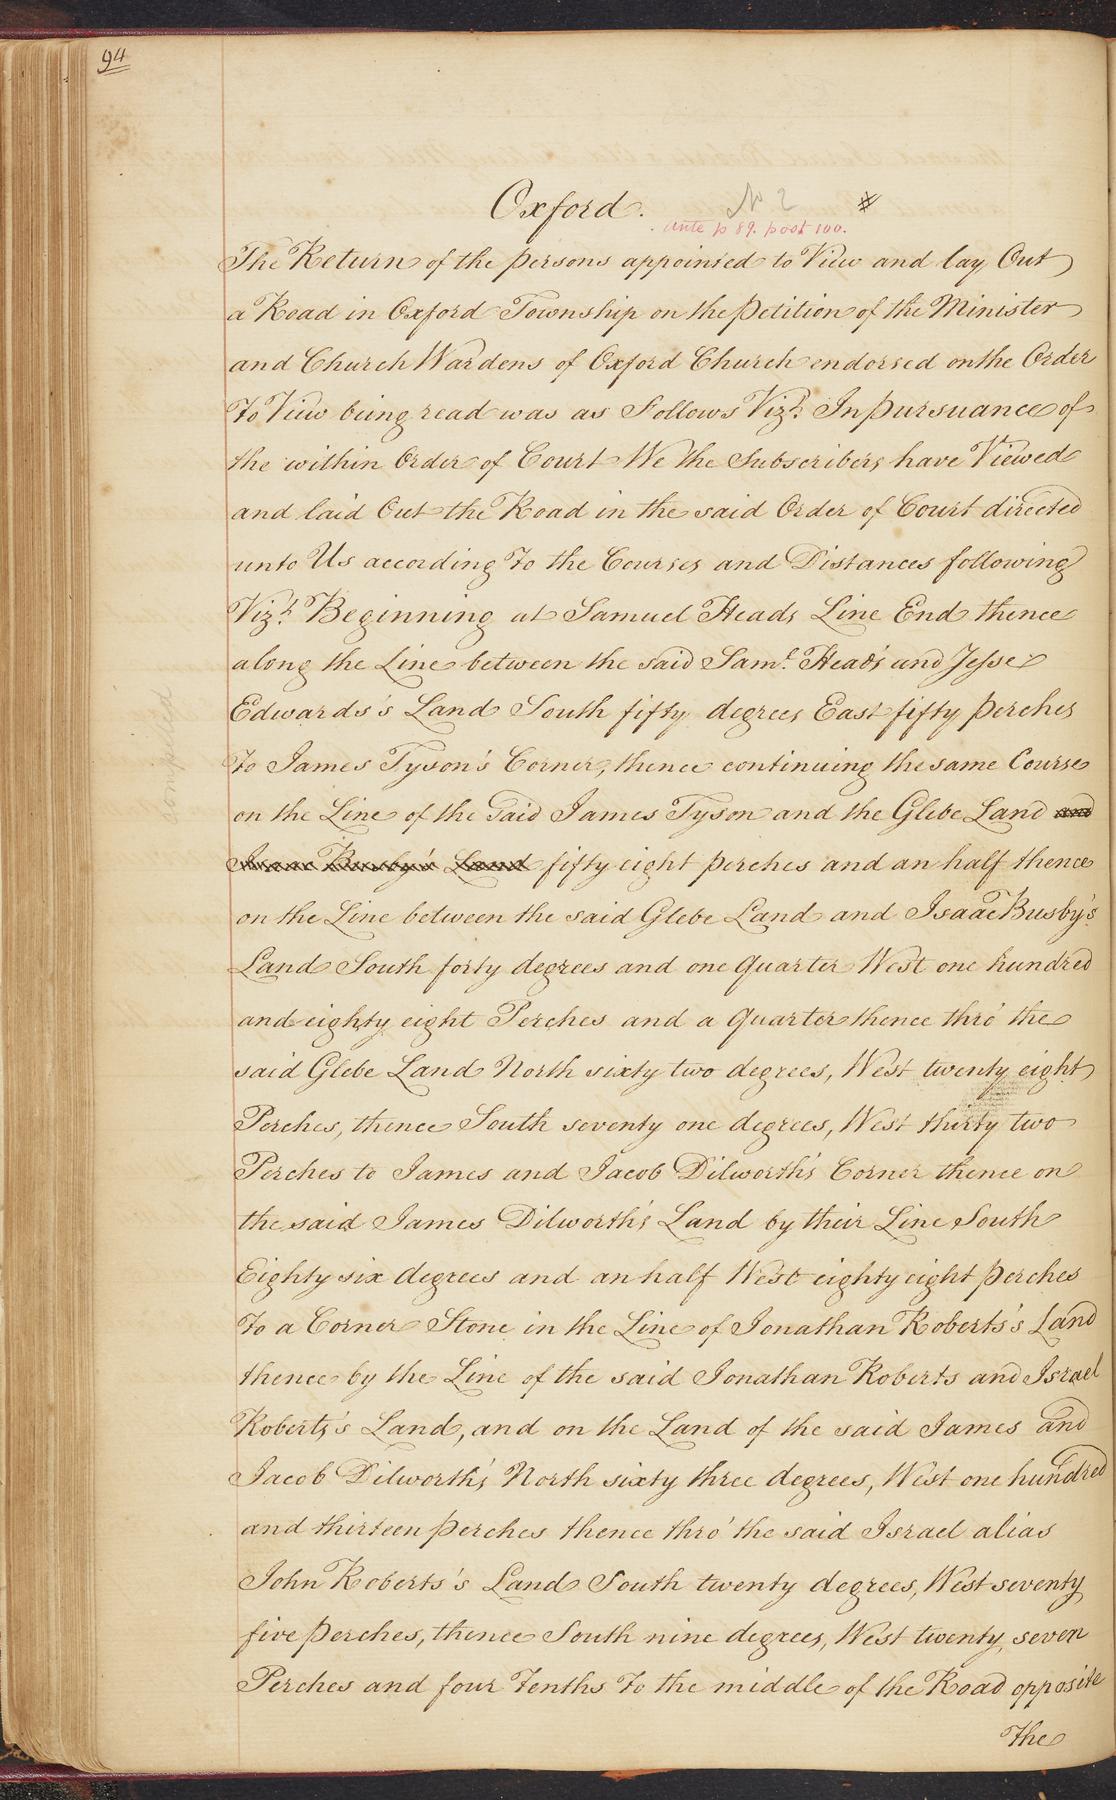 94
Oxford. No 2 #
ante p 89. post 100.
The Return of the persons appointed to View and lay Out
a Road in Oxford Township on the petition of the Minister
and Church Wardens of Oxford Church endorsed on the Order
To View being read was as Follows Vizt. In pursuance of
the within Order of Court We the Subscribers have Viewed
and laid Out the Road in the said Order of Court directed
unto Us according To the Courses and Distances following
Vizt. Beginning at Samuel Heads Line End thence
along the Line between the said Saml. Head's and Jesse
Edwards's Land South fifty degrees East fifty perches
To James Tyson's Corner, thence continuing the same Course
on the Line of the Said James Tyson and the Glebe Land and
Isaac Busby's Land fifty eight perches and an half thence
on the Line between the said Glebe Land and Isaac Busby's
Land South forty degrees and one Quarter West one hundred
and eighty eight Perches and a Quarter thence thro' the
said Glebe Land North sixty two degrees, West twenty eight
Perches, thence South seventy one degrees, West thirty two
Perches to James and Jacob Dilworth's Corner thence on
the said James Dilworth's Land by their Line South
Eighty six degrees and an half West eighty eight perches
To a Corner Stone in the Line of Jonathan Roberts's Land
thence by the Line of the said Jonathan Roberts and Israel
Roberts's Land, and on the Land of the said James and
Jacob Dilworth's North sixty three degrees, West one hundred
and thirteen perches thence thro' the said Israel alias
John Roberts's Land South twenty degrees, West seventy
five perches, thence South nine degrees, West twenty seven
Perches and four Tenths To the middle of the Road opposite
The
compared